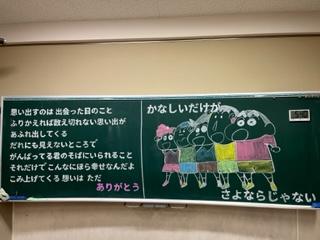 思い出すのは 出会った日のこと
ふりかえれば数え切れない思い出が
あふれ出してくる
だれにも見えないところで
がんばってる君のそばにいられること
それだけでこんなにほら幸せなんだよ
こみ上げてくる 想いは ただ
ありがとう
かなしいだけが
さよならじゃない